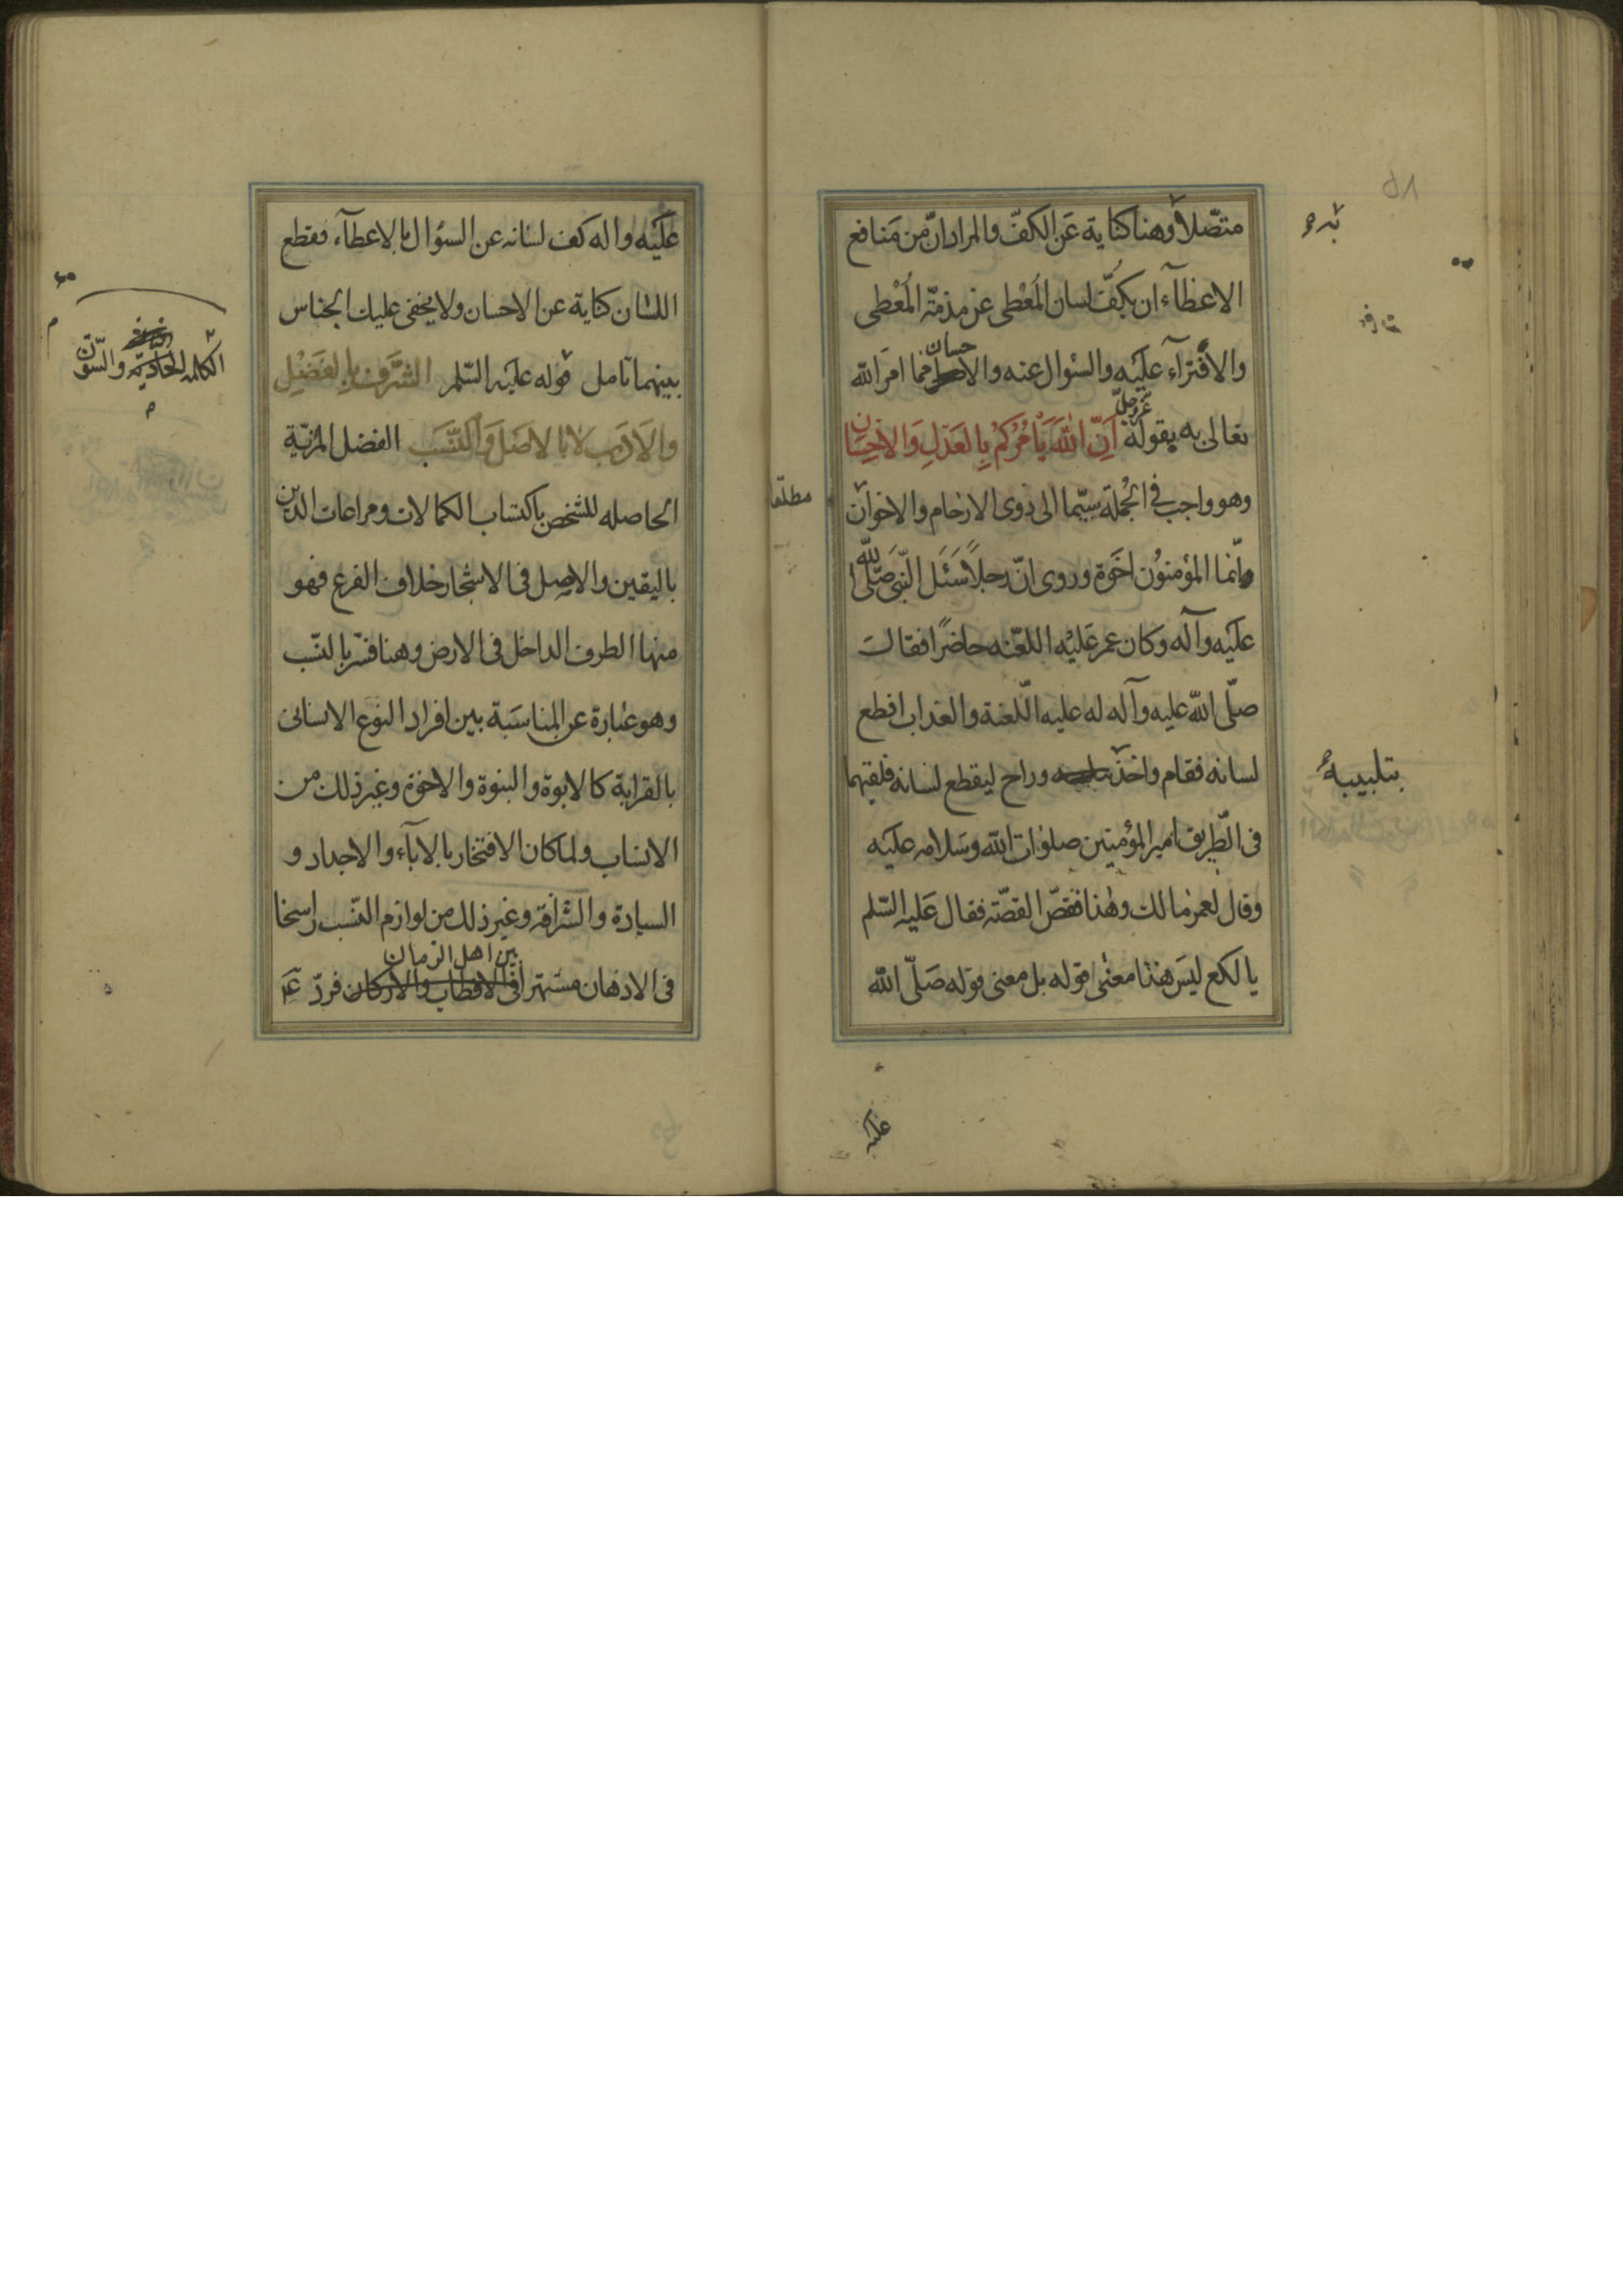 متصّلاً وهنا كناية عَن الكفّ والمراد انّ من مَنافع
الاعطآء ان يكُفّ لسان المُعْطى عن مذمّة المُعْطى
والافترآء عليَه والسئوال عنه والاحسان مما امرَ الله
تعالى به بقوله عزّ وجلّ اَنِّ اللهَ يَأمُرُكُمْ بِالعَدْلِ وَالاِحْسَانِ
وهو واجب فى الجُملة سيّما الى ذوى الارحام والاخوان
مطلقا
وانّما المؤمنوُن اخَوة وروى انّ رجلاً سَئَل النّبىَ صَلّى الله
عليَه وآله وَكان عمر عَليْه اللعّنه حاضرًا فقالَ
صلّى الله عليه وآله له عليه الّلعنة والعذاب اقطع
لسانه فقام واخذ وراح ليقطع لسانه فلقيهما
بتلبيبه
فى الطّريق امير المؤمنين صلوٰات الله وسَلامه عليَه
وقال لعمر مالك وهٰذا فقصّ القصّة فقال عَليه السّلم
يا لكع ليسَ هٰذا معنٰى قوله بل معنى قوله صَلّى الله
عليه
عليَه واله كف لسانه عن السئوال بالاعطآء، فقطع
اللسٰان كناية عن الاحسان ولا يخفى عليك الجناس
بينهما تامل قوله عليَه السّلم الشَّرَف بِالفَضْلِ
وَالاَدَبِ لاٰ بِالاَصْلَ وَالنَّسَبِ الفضل المزيّة
الحاصله للشّخص باكتساب الكمالات ومراعات الدّين
باليقين والاصل فى الاشجار خلاف الفرع فهو
منها الطرف الداخل فى الارض وهنا فسّر بالنّسب
وهو عبٰارة عن المناسَبة بين افراد النوع الانسانى
بالقرابة كالابوة والبنوة والاخوّة وغير ذلك من
الانساب ولما كان الافتخار بالابآء والاجداد و
السيادة والشرافة وغير ذلك من لوازم النّسب راسخا
بين اهل الزمان
فى الاذهان مشتهرا فى الاقطاب والاركان فردّ عَ